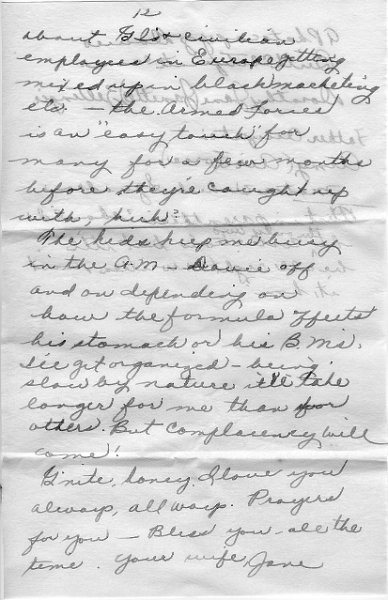 12
about GIs + civilian
employees in Europe getting
mixed up in black marketing
etc — the Armed Forces
is an "easy touch" for
many for a few months
before they're caught up
with, huh?
The kids keep me busy
in the A.M. Davie off
and on depending on
how the formula affects
his stomach or his B.Ms.
I'll get organized – being
slow by nature it'll take
longer for me than for
others. But complacency will
come!
G'nite, honey, I love you
always, all ways. Prayers
for you – Bless you – all the
time. Your wife, Jane